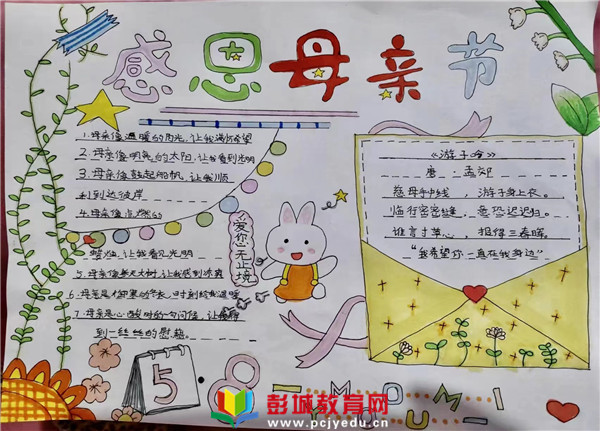 感恩母亲节
1.母亲像温暖的阳光,让我满怀希望
2.母亲像明亮的太阳,让我看到光明
3.母亲像鼓起的帆,让我顺
利到达彼岸
4.母亲像点燃的
让我看见光明
5.母亲像参天大树,让我感到凉爽
6.母亲是
7.母亲是心
到一丝丝的慰藉。
爱您无止境
《游子吟》
唐·孟郊
慈母手中线,游子身上衣。
临行密密缝,意恐迟迟归。
谁言寸草心,报得三春晖。
"我希望你一直在我身边"
5
8
彭城教育网
www.pcjyedu.cn